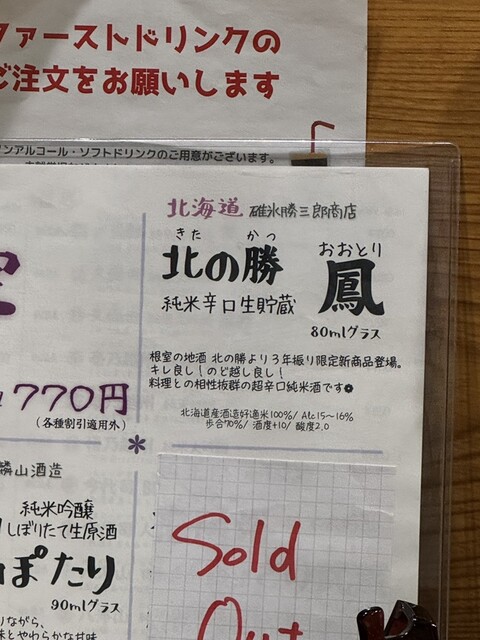 ファーストドリンクの
ご注文をお願いします
ンアルコール・ソフトドリンクのご用意がございます。
北海道 碓氷勝三郎商店
きた かつ おおとり
北の勝 鳳
純米辛口生貯蔵
80mlグラス
根室の地酒 北の勝より3年振り限定新商品登場。
キレ良し!のど越し良し!
料理との相性抜群の超辛口純米酒です
北海道産酒造好適米100%/Alc15~16%
歩合70%/酒度+10/酸度2.0
770円
(各種割引適用外)
麟山酒造
純米吟醸
しぼりたて生原酒
ぽたり
90mlグラス
りながら、
味とやわらかな甘味
Sold
Out